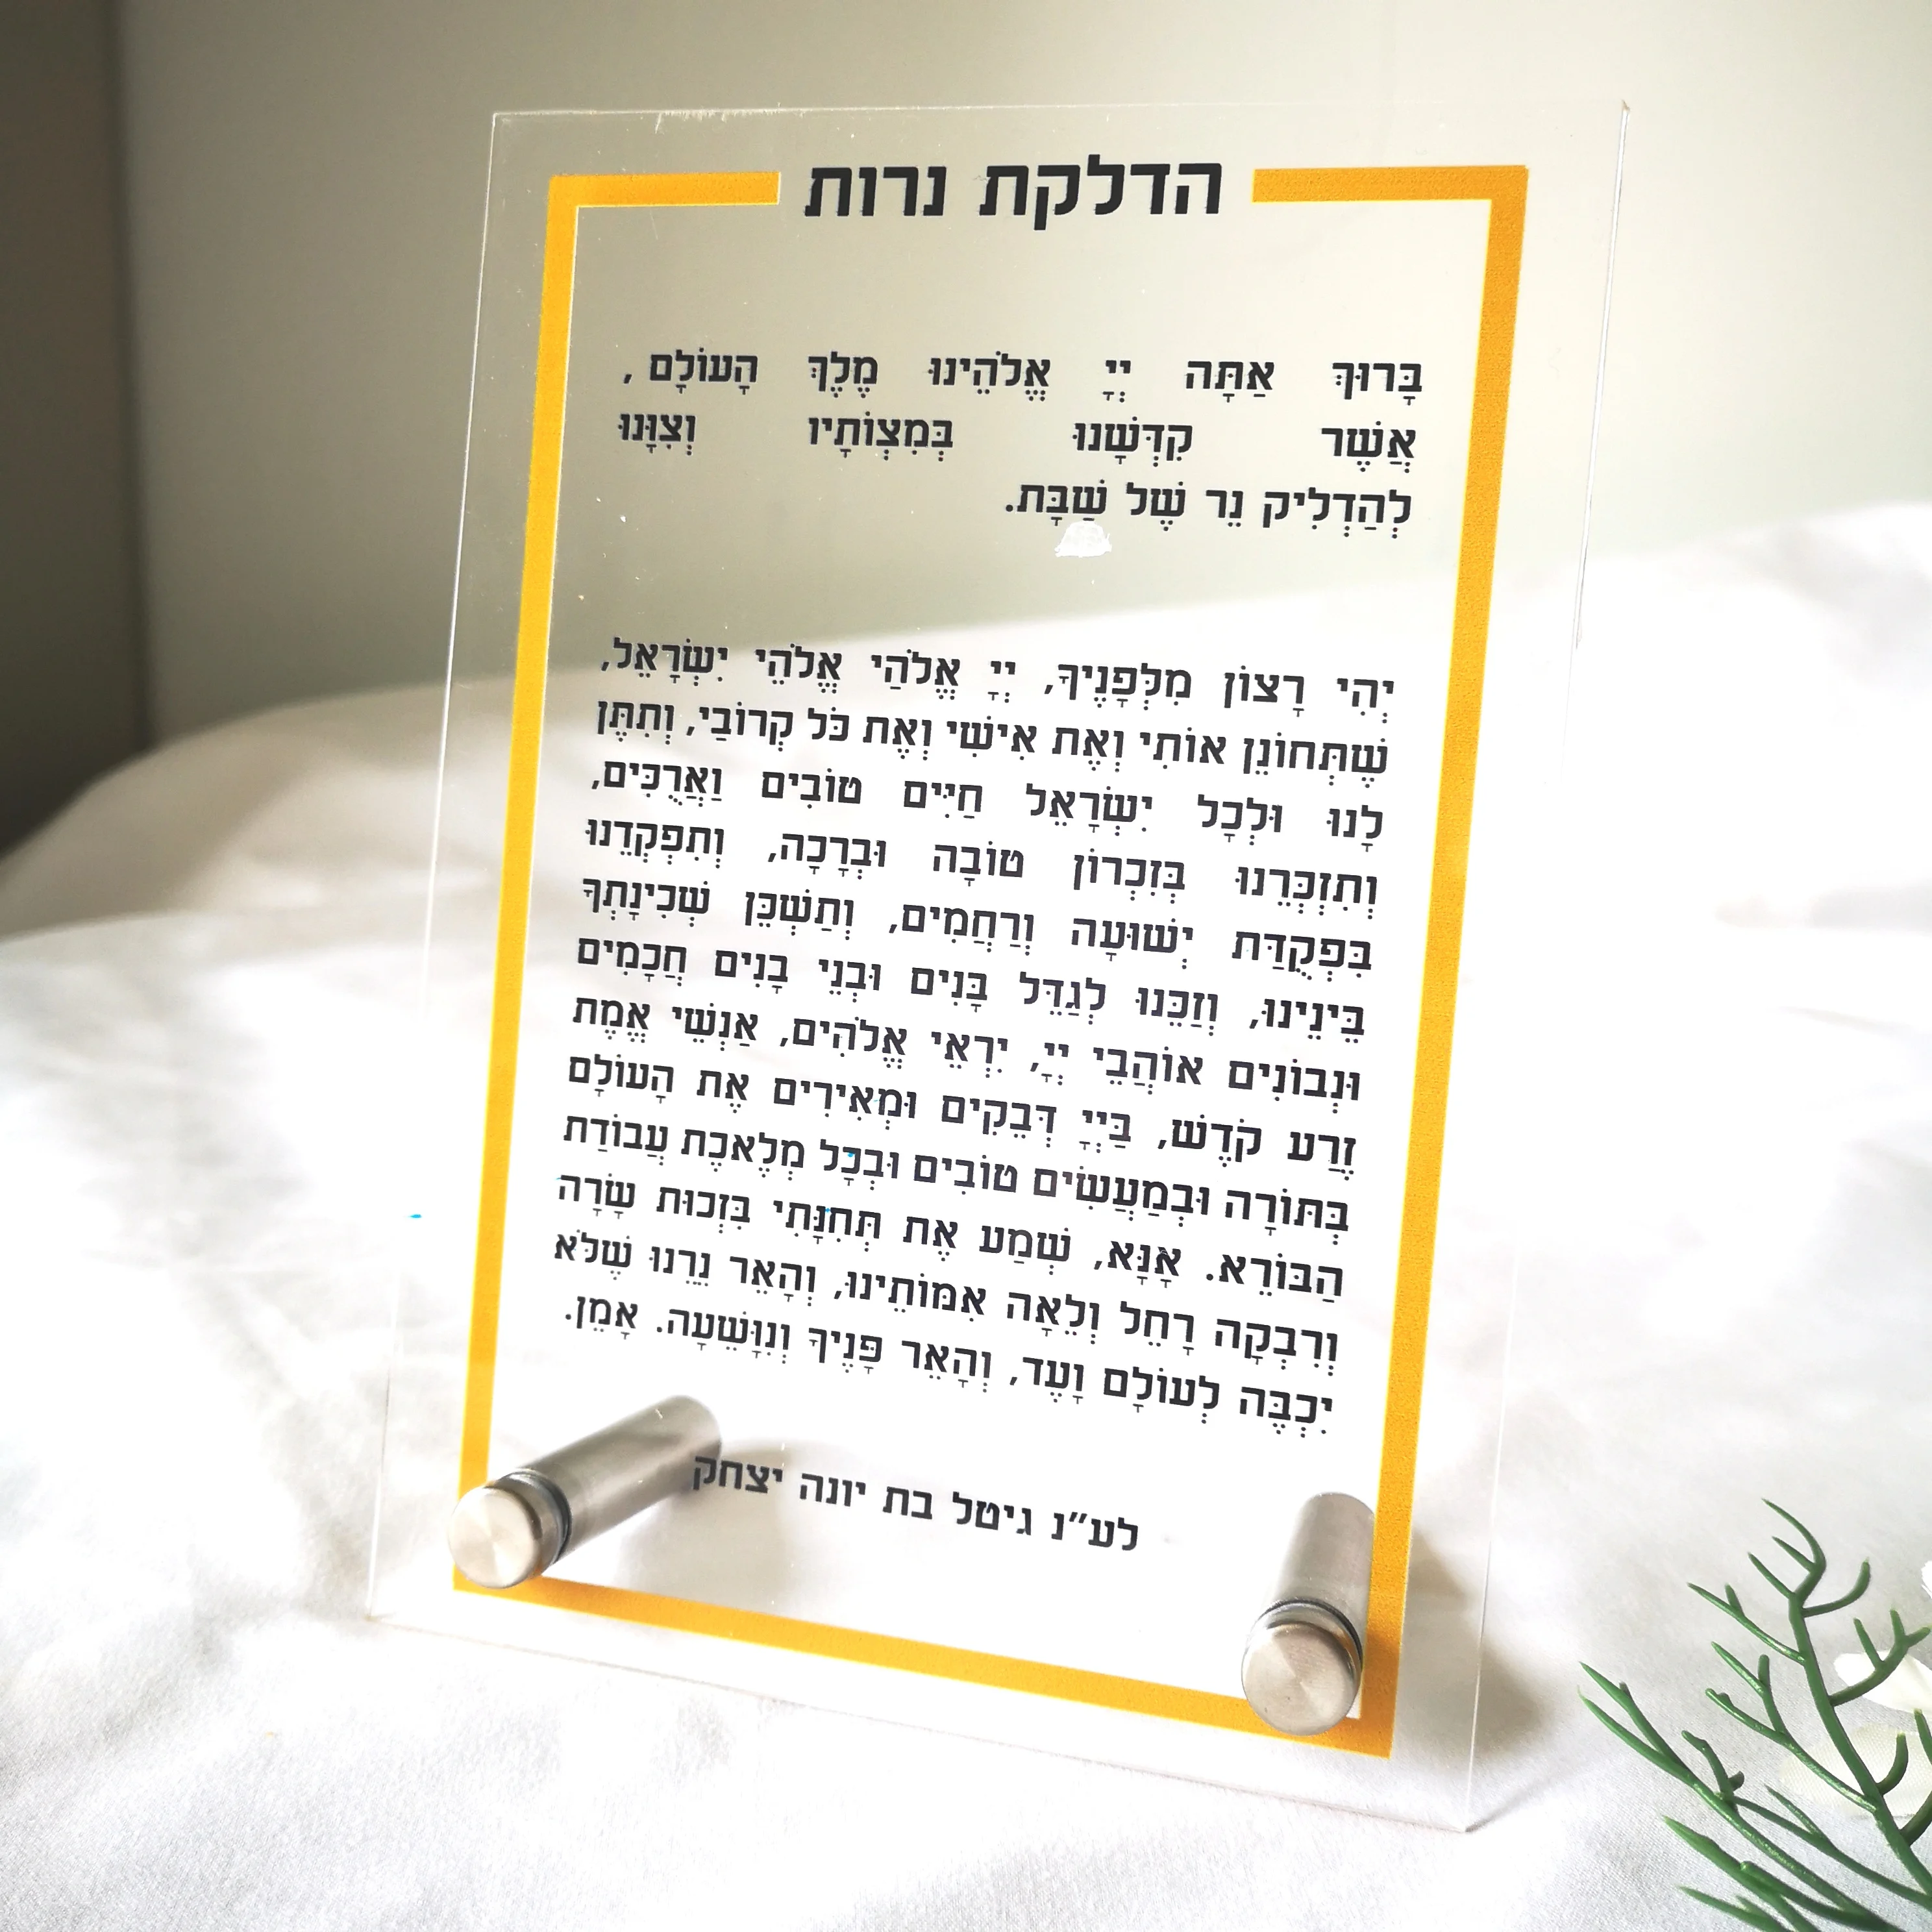 הדלקת נרות
בָּרוּךְ אַתָּה יְיָ אֱלֹהֵינוּ מֶלֶךְ הָעוֹלָם ,
אֲשֶׁר קִדְּשָׁנוּ בְּמִצְוֹתָיו וְצִוָּנוּ
לְהַדְלִיק נֵר שֶׁל שַׁבָּת.
יְהִי רָצוֹן מִלְּפָנֶיךָ, יְיָ אֱלֹהַי אֱלֹהֵי יִשְׂרָאֵל,
שֶׁתְּחוֹנֵן אוֹתִי וְאֶת אִישִׁי וְאֶת כֹּל קְרוֹבַי, וְתִתֶּן
לָנוּ וּלְכָל יִשְׂרָאֵל חַיִּים טוֹבִים וַאֲרֻכִּים,
וְתִזְכְּרֵנוּ בְּזִכְרוֹן טוֹבָה וּבְרָכָה, וְתִפְקְדֵנוּ
בִּפְקֻדַּת יְשׁוּעָה וְרַחֲמִים, וְתַשְׁכֵּן שְׁכִינָתְךָ
בֵּינֵינוּ, וְזַכֵּנוּ לְגַדֵּל בָּנִים וּבְנֵי בָנִים חֲכָמִים
וּנְבוֹנִים אוֹהֲבֵי יְיָ, יִרְאֵי אֱלֹהִים, אַנְשֵׁי אֱמֶת
זֶרַע קֹדֶשׁ, בַּיְיָ דְּבֵקִים וּמְאִירִים אֶת הָעוֹלָם
בְּתּוֹרָה וּבְמַעֲשִׂים טוֹבִים וּבְכָל מְלֶאכֶת עֲבוֹדַת
הַבּוֹרֵא. אָנָּא, שְׁמַע אֶת תְּחִנָּתִי בִּזְכוּת שָׂרָה
וְרִבְקָה רָחֵל וְלֵאָה אִמּוֹתֵינוּ, וְהָאֵר נֵרֵנוּ שֶׁלֹּא
יִכְבֶּה לְעוֹלָם וָעֶד, וְהָאֵר פָּנֶיךָ וְנִוָּשֵׁעָה. אָמֵן.
לע״נ גיטל בת יונה יצחק